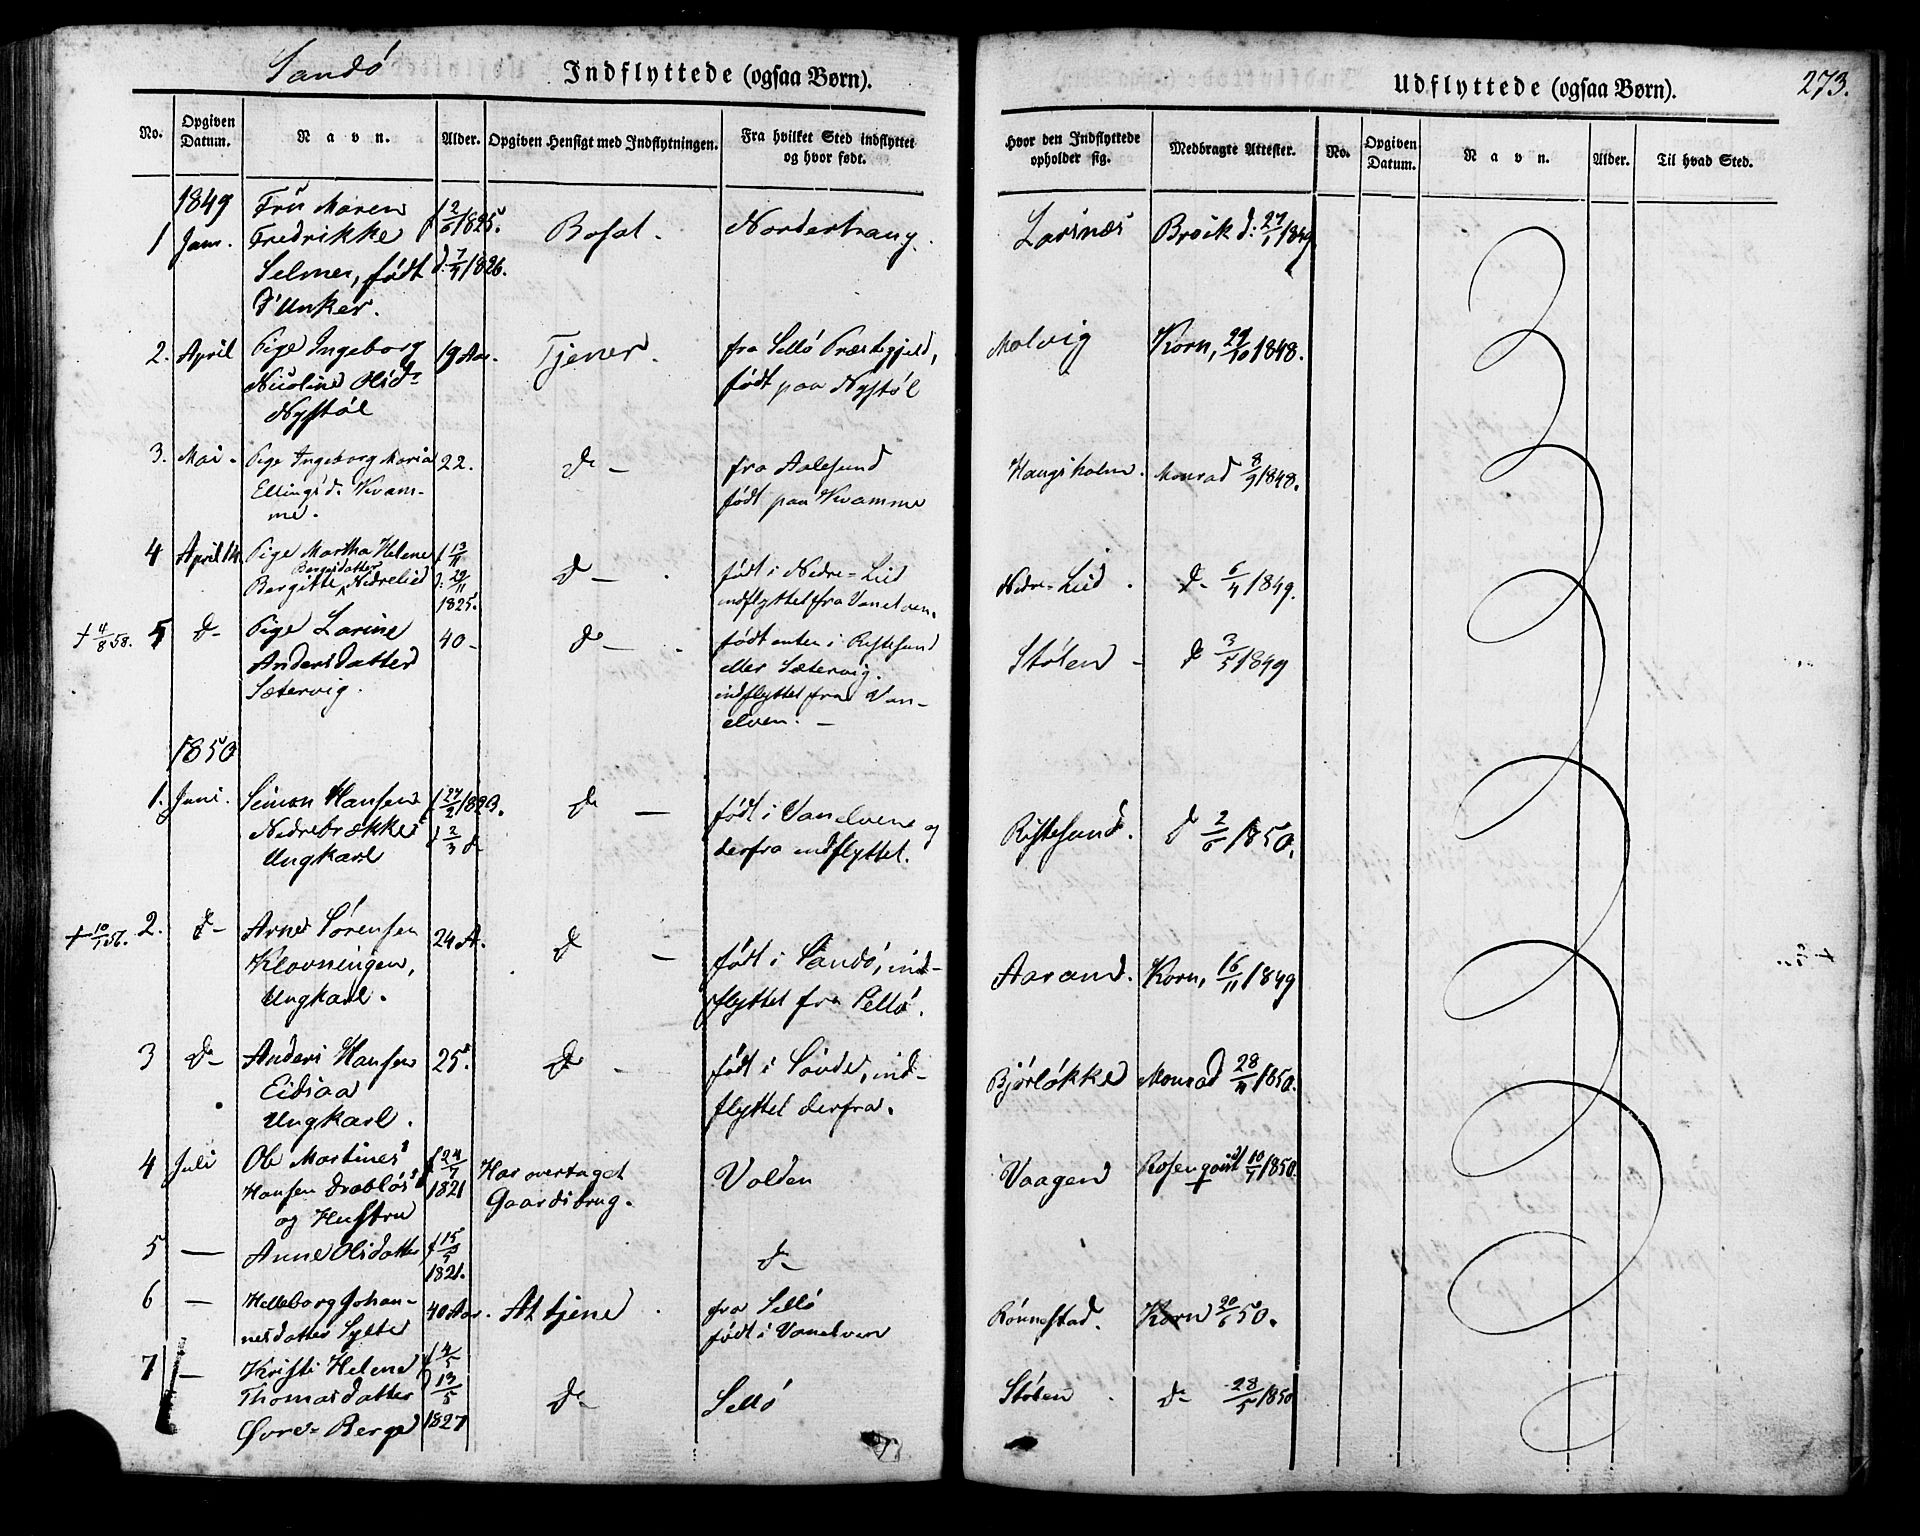 Sandö
Indflyttede (ogsaa Børn).
Udflyttede (ogsaa Børn).
273.
No. Opgiven Datum. Navn. Alder. Opgiven Hensigt med Indflytningen. Fra hvilket Sted indflyttet og hvor født. Hvor den Indflyttede opholder sig. Medbragte Attester. No. Opgiven Datum. Navn. Alder. Til hvad Sted.
1849
1 Jan. Fru Maren f 2/6 1825. Bosat. Norderhaug. Larsnæs Brock d. 27/1 1849
Fredrikke d. 7/4 1826.
Selmer, født
Dunker.
2. April Pige Ingeborg 19 Aar. Tjener. fra Sellö Præstegjeld, Molvig Korn, 29/10 1848.
Nicoline Olsd født paa Nystøl
Nystøl
3. Mai. Pige Ingeborg Maria 22. D - fra Aalesund Haugsholm. Monrad 8/9 1848.
Ellingsd. Kvam- født paa Kvamme
me.
4 April 14. Pige Martha Helene f 13/11 D - født i Nedre-Lied Nedre-Lied. D 6/4 1849.
Bergesdatter
Bergitte Nedrelied d. 20/11 indflyttet fra Vanelven.
1825.
† 4/8 58. 5 D- Pige Larine 40 - D - født enten i Ristesund Stölen - D 3/5 1849
Andersdatter eller Sætervig.
Sætervig. indflyttet fra Van-
elven. -
1850
1. Juni. Simon Hansen f 27/2 1823. D - født i Vanelven og Ristesund. D 2/6 1850.
Nedrebrække d 2/3 D derfra indflyttet.
Ungkarl
† 10/1 56. 2. D- Arne Sörensen 24 A. D - født i Sandö, ind- Aarand. Korn, 16/11 1849
Klovningen, flyttet fra Sellö.
Ungkarl.
3 D- Anders Hansen 25. D - født i Sövde, ind- Bjørløkke Monrad 28/4 1850.
Eidsaa flyttet derfra.
Ungkarl.
4 Juli Ole Martines f 24/7 Har overtaget Volden Vaagen Rosenqvist 10/7 1850.
Hansen Drabløs 1821 Gaardsbrug.
og Hustru
5 - Anne Olsdatter f 15/5 D-
1821.
6 - Helleborg Johan- 40 Aar. At tjene. fra Sellö Rønnestad. Korn 20/6 50.
nesdatter Sylte født i Vanelven
7 - Kristi Helene f 4/5 D- Sellö Stölen. D- 28/5 1850
Thomasdatter D 13/5
Øvre-Berge 1827